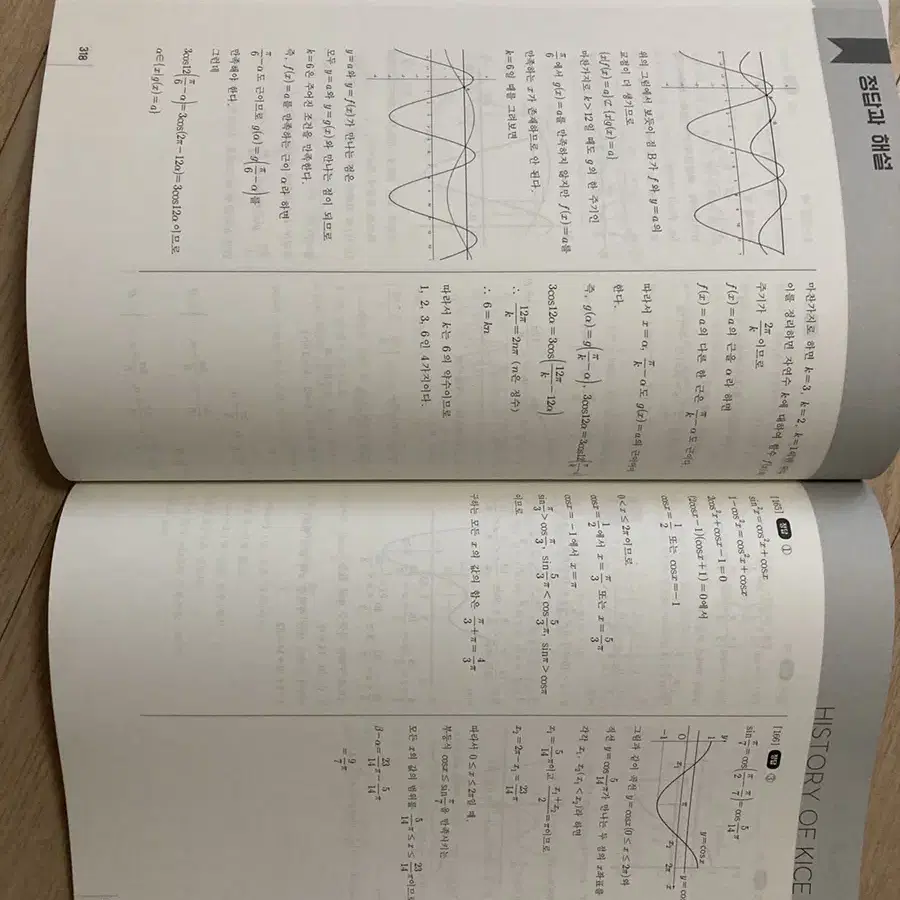 정답과 해설
위의 그림에서 보듯이 점 B가 f와 y=a의
교점이 더 생기므로
{x|f(x)=a}⊄{x|g(x)=a}
마찬가지로 k>12일 때도 g의 한 주기인
π/6에서 g(x)=a를 만족하지 않지만 f(x)=a를
만족하는 x가 존재하므로 안 된다.
k=6일 때를 그려보면
y=a와 y=f(x)가 만나는 점은
모두 y=a와 y=g(x)와 만나는 점이 되므로
k=6은 주어진 조건을 만족한다.
즉, f(x)=a를 만족하는 근이 α라 하면
π/6-α도 근이므로 g(α)=g(π/6-α)를
만족해야 한다.
그런데
3cos12(π/6-α)=3cos(2π-12α)=3cos12α이므로
α∈{x|g(x)=a}
318
마찬가지로 하면 k=3, k=2, k=1
이를 정리하면 자연수 k에 대하여 함수
주기가 2π/k이므로
f(x)=a의 근을 α라 하면
f(x)=a의 다른 한 근은 π/k-α도 근이다.
따라서 x=α, π/k-α도 g(x)=a의 근이어야
한다.
즉, g(α)=g(π/k-α), 3cos12α=3cos12
3cos12α=3cos(12π/k-12α)
∴ 12π/k=2nπ (n은 정수)
∴ 6=kn
따라서 k는 6의 약수이므로
1, 2, 3, 6인 4가지이다.
HISTORY OF KICE
[165] 정답 ①
sin²x=cos²x+cosx
1-cos²x=cos²x+cosx
2cos²x+cosx-1=0
(2cosx-1)(cosx+1)=0에서
cosx=1/2 또는 cosx=-1
0<x≤2π이므로
cosx=1/2에서 x=π/3 또는 x=5/3π
cosx=-1에서 x=π
sinπ/3>cosπ/3, sin5/3π<cos5/3π, sinπ>cosπ
이므로
구하는 모든 x의 값의 합은 π/3+π=4/3π
[166] 정답 ③
sinπ/7=cos(π/2-π/7)=cos5/14π
y
1
0
-1
x₁
π
x₂
2π
x
y=cosx
그림과 같이 곡선 y=cosx(0≤x≤2π)와
직선 y=cos5/14π가 만나는 두 점의 x좌표를
각각 x₁, x₂(x₁<x₂)라 하면
x₁=5/14π이고 (x₁+x₂)/2=π이므로
x₂=2π-x₁=23/14π
따라서 0≤x≤2π일 때,
부등식 cosx≤sinπ/7을 만족시키는
모든 x의 값의 범위를 5/14π≤x≤23/14π이므로
β-α=23/14π-5/14π
=9/7π